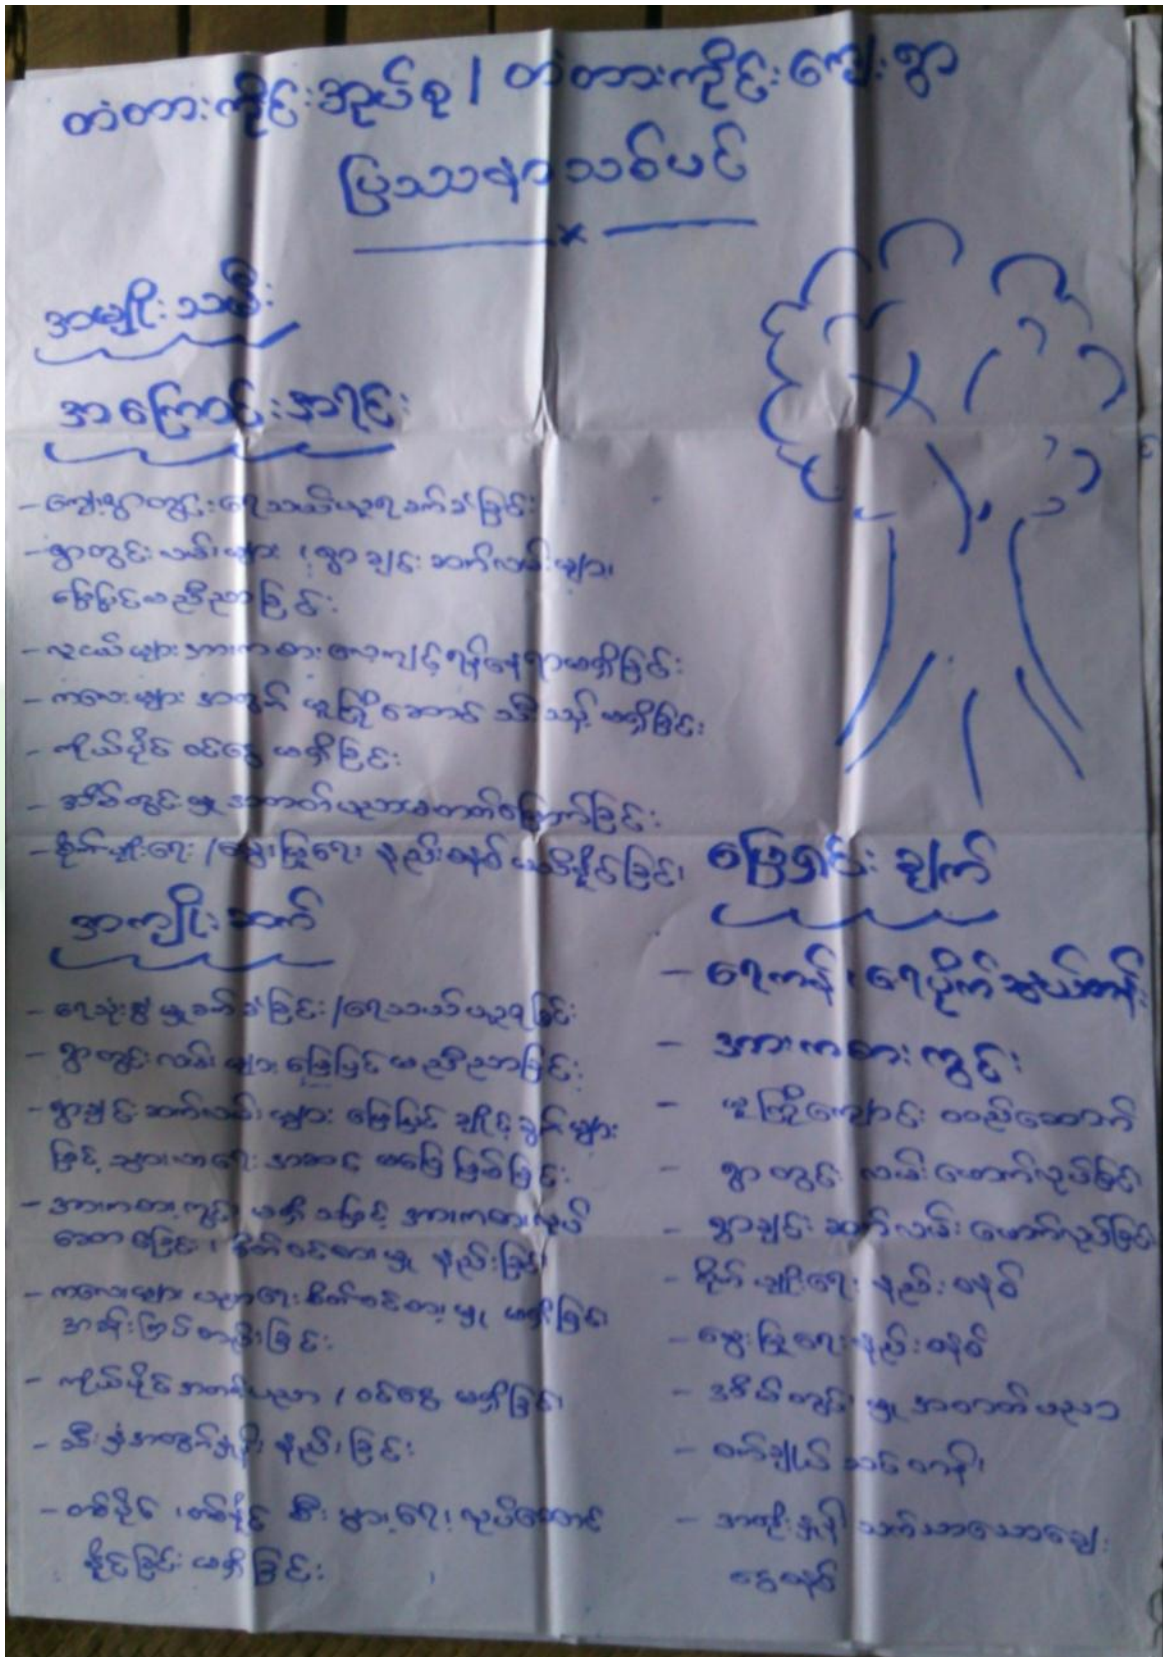 တံတားကိုင်းအုပ်စု / တံတားကိုင်းကျေးရွာ
ပြဿနာသစ်ပင်
အမျိုးသမီး
အကြောင်းအရင်း
- ကျေးရွာတွင်းရေသယ်ယူရခက်ခဲခြင်း
- ရွာတွင်းလမ်းများ ၊ ရွာချင်းဆက်လမ်းများ၊
မြေပြင်မညီညာခြင်း
- လူငယ်များအားကစားလေ့ကျင့်ရန်နေရာမရှိခြင်း
- ကလေးများအတွက် မူကြိုဆောင် သီးသန့် မရှိခြင်း
- ကိုယ်ပိုင် ဝင်ငွေ မရှိခြင်း
- အိမ်တွင်းမှု အတတ်ပညာမတတ်မြောက်ခြင်း
- စိုက်ပျိုးရေး / မွေးမြူရေး နည်းစနစ် မသိရှိခြင်း၊
အကျိုးဆက်
- ရေသုံးစွဲမှုခက်ခဲခြင်း / ရေသယ်ယူရခြင်း
- ရွာတွင်းလမ်းများ မြေပြင်မညီညာခြင်း
- ရွာချင်းဆက်လမ်းများ မြေပြင် ချိုင့်ခွက်များ
ဖြင့် သွားလာရေး အဆင်မပြေဖြစ်ခြင်း
- အားကစားကွင်း မရှိသဖြင့် အားကစားလုပ်
စိတ်ဝင်စားမှု နည်းခြင်း
- ကလေးများ ပညာရေးစိတ်ဝင်စားမှု မရှိခြင်း
- ကိုယ်ပိုင်အတတ်ပညာ / ဝင်ငွေ မရှိခြင်း
- သီးနှံအထွက်နှုန်း နည်းခြင်း
- တစ်ပိုင် ၊ တစ်နိုင် စီးပွားရေး လုပ်ဆောင်
နိုင်ခြင်း မရှိခြင်း
ဖြေရှင်းချက်
- ရေကန် ၊ ရေပိုက်သွယ်တန်း
- အားကစားကွင်း
- မူကြိုကျောင်း တည်ဆောက်
- ရွာတွင်း လမ်းဖောက်လုပ်ခြင်း
- ရွာချင်း ဆက်လမ်း ဖောက်လုပ်ခြင်း
- စိုက်ပျိုးရေး နည်းစနစ်
- မွေးမြူရေးနည်းစနစ်
- အိမ်တွင်းမှု အတတ်ပညာ
- စက်ချုပ် သင်တန်း
- အတိုးနှုန်း သက်သာသောချေး
ငွေစနစ်